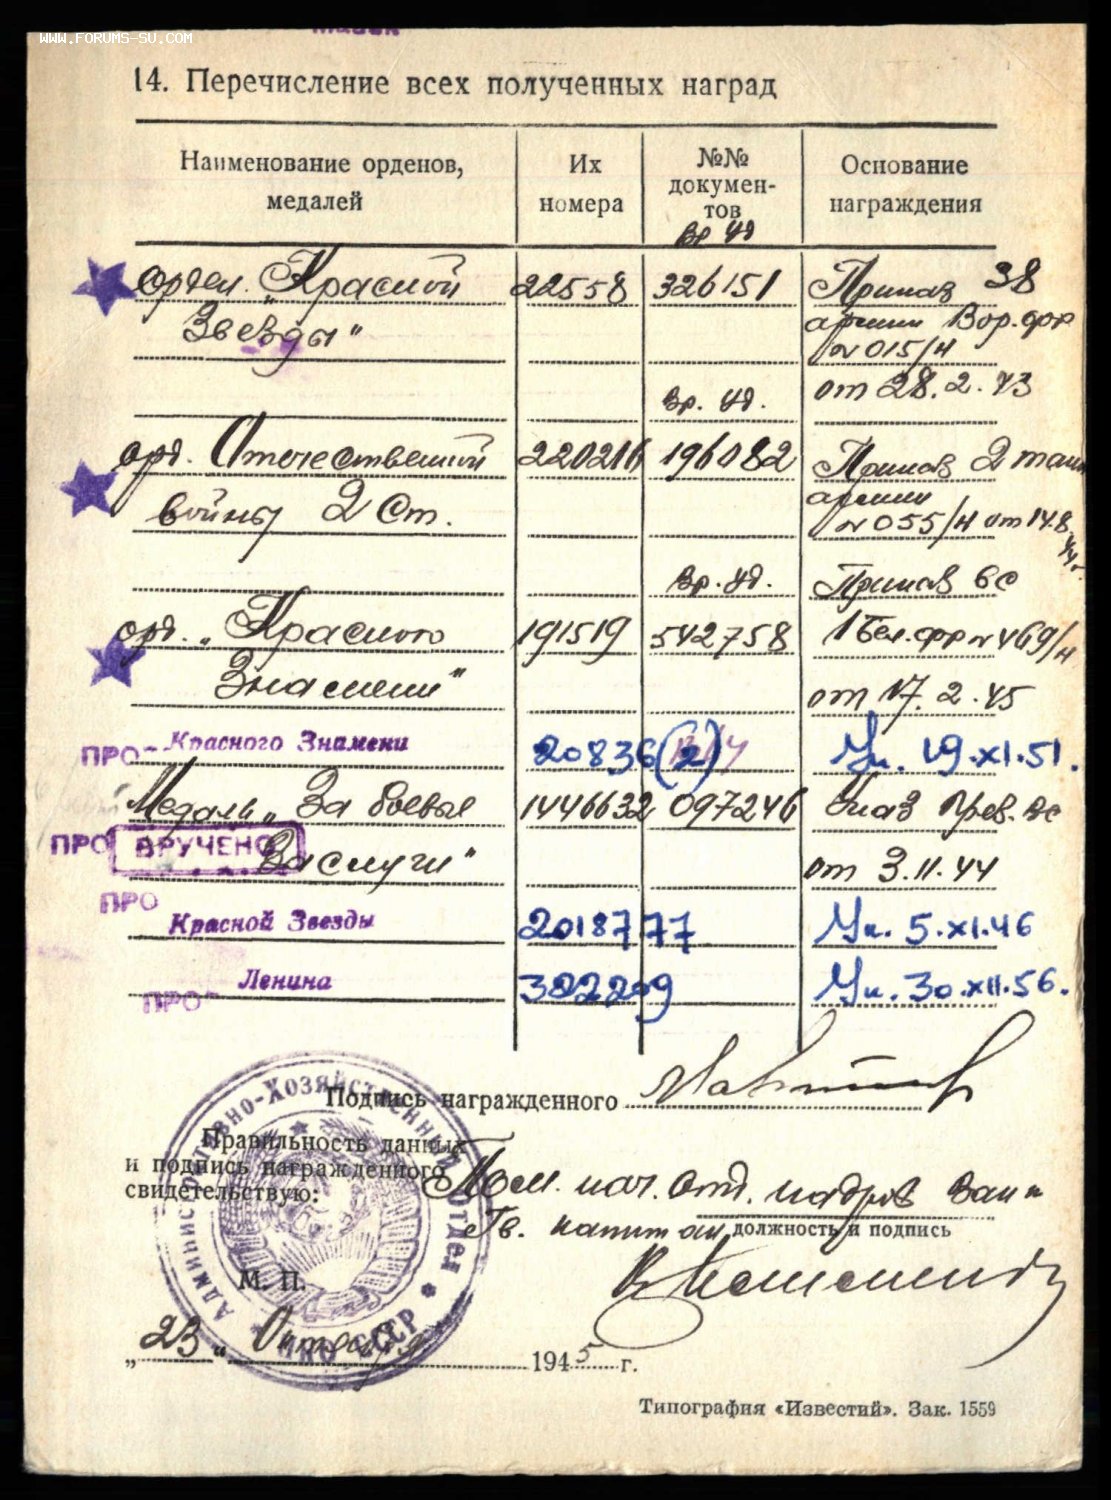 WWW.FORUMS-SU.COM
14. Перечисление всех полученных наград
Наименование орденов, медалей
Их номера
№№ документов
Вр уд
Основание награждения
орден „Красной 22558 326151 Приказ 38
Звезды“ армии Вор. фр
№ 015/н
Вр. уд. от 28.2.43
орд. Отечественной 220216 196082 Приказ 2 танк
армии
войны 2 Ст. № 055/н от 14.8
44г.
Вр. уд. Приказ ВС
орд. „Красного 191519 542758 1 Бел. фр № 469/н
Знамени“ от 17.2.45
ПРО Красного Знамени 20836 (2) Ук. 19.XI.51.
Медаль „За боевые 1446632 097246 Указ През. ВС
ПРО ВРУЧЕНО Заслуги“ от 3.11.44
ПРО
Красной Звезды 2018777 Ук. 5.XI.46
Ленина 322209 Ук. 30.XII.56.
ПРО
Подпись награжденного
Правильность данных
и подпись награжденного
свидетельствую:
Пом. нач. отд. кадров
Гв. капитан должность и подпись
Административно-Хозяйственный Отдел * НКО СССР *
М. П.
„23“ Октября 1945 г.
Типография «Известий». Зак. 1559